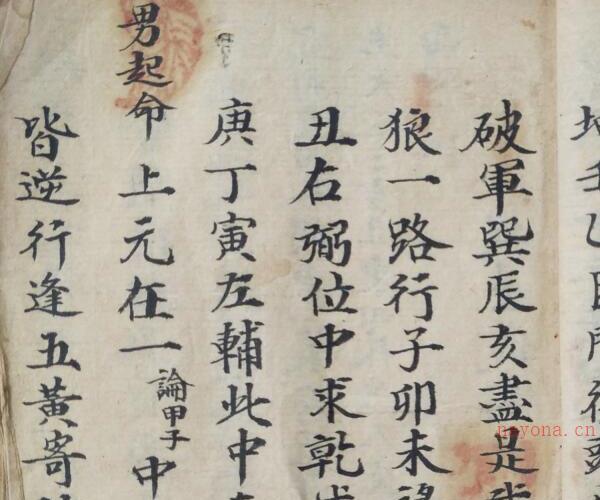 壬乙
破軍巽辰亥盡是
狼一路行子卯未
丑右弼位中求乾
庚丁寅左輔此中
男起命上元在一論甲子中
皆逆行逢五黃寄
nayona.cn